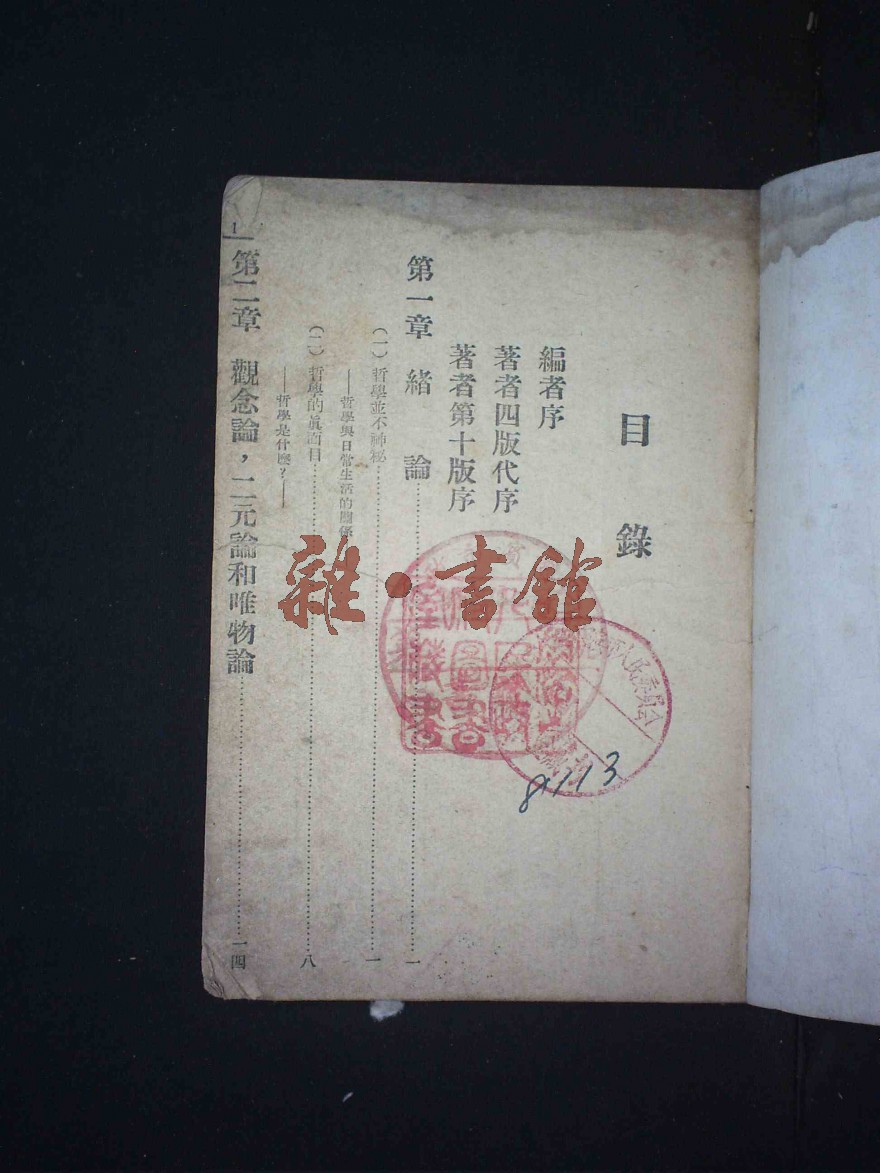 目錄
編者序
著者四版代序
著者第十版序
第一章 緒論 一
(一)哲學並不神秘 一
——哲學與日常生活的關係
(二)哲學的眞面目 八
——哲學是什麽?——
第二章 觀念論,二元論和唯物論 一四
1
雜·書館
人民委員會
8113